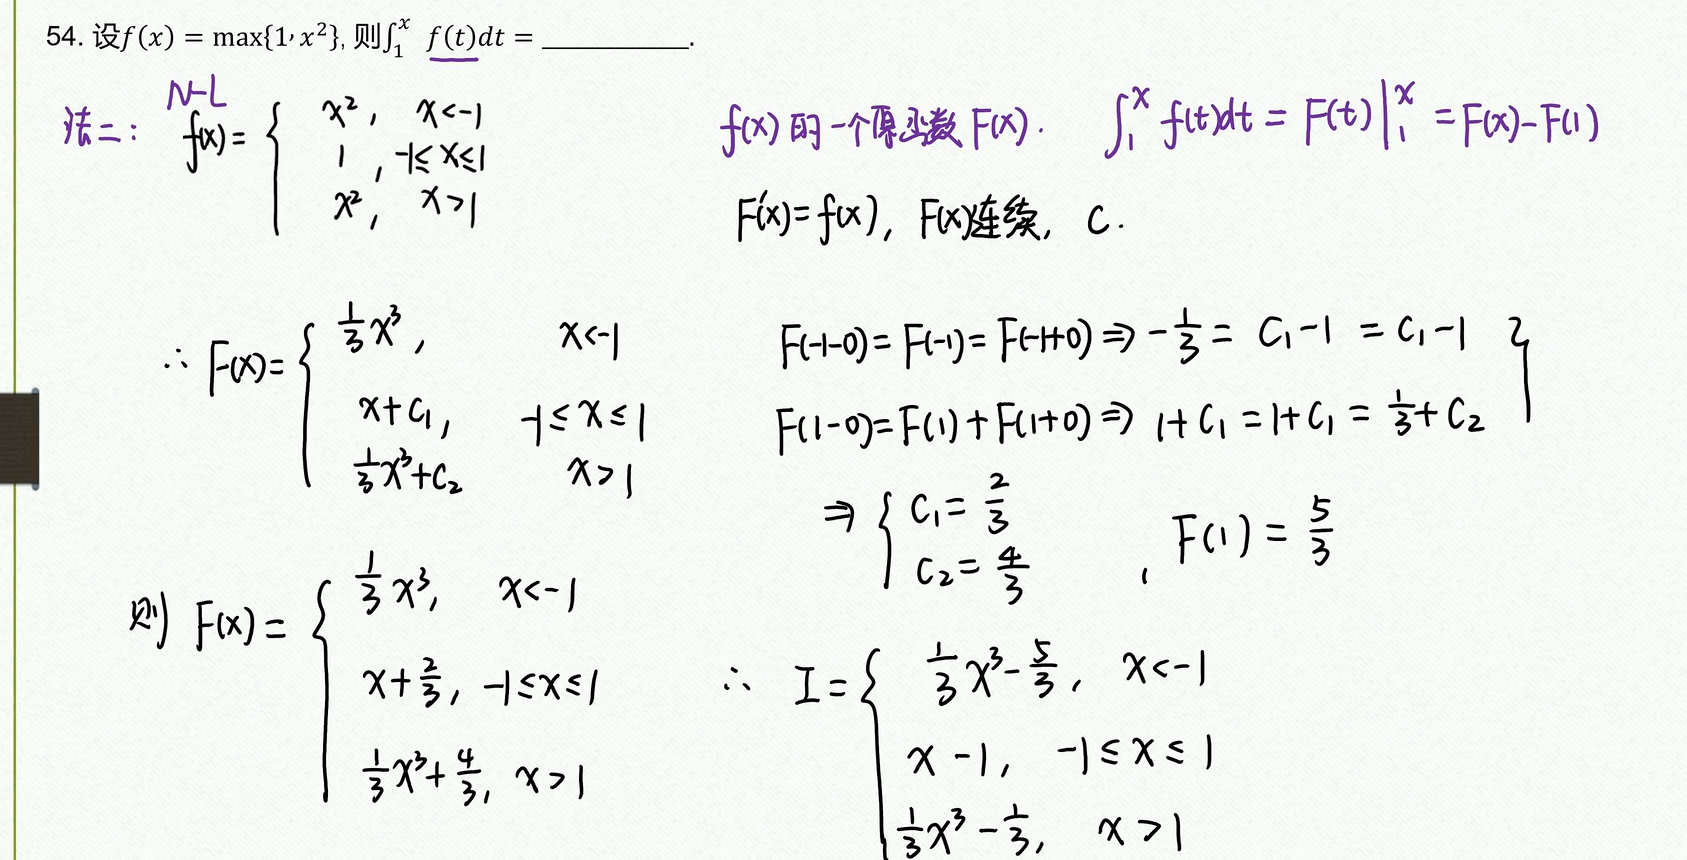 54. 设f(x) = max{1, x²}, 则∫₁ˣ f(t)dt = ____________.
N-L
法二: f(x) = { x², x<-1
1, -1≤x≤1
x², x>1
f(x) 的一个原函数 F(x). ∫₁ˣ f(t)dt = F(t)|₁ˣ = F(x)-F(1)
F'(x)=f(x), F(x)连续, C.
∴ F(x)= { 1/3 x³, x<-1
x+C₁, -1≤x≤1
1/3 x³+C₂ x>1
F(-1-0)=F(-1)=F(-1+0) ⇒ -1/3 = C₁-1 = C₁-1 }
F(1-0)=F(1)+F(1+0) ⇒ 1+C₁ =1+C₁ = 1/3+C₂
⇒ { C₁= 2/3
C₂= 4/3 , F(1) = 5/3
则 F(x)= { 1/3 x³, x<-1
x+2/3, -1≤x≤1
1/3 x³+4/3, x>1
∴ I= { 1/3 x³-5/3, x<-1
x-1, -1≤x≤1
1/3 x³-1/3, x>1